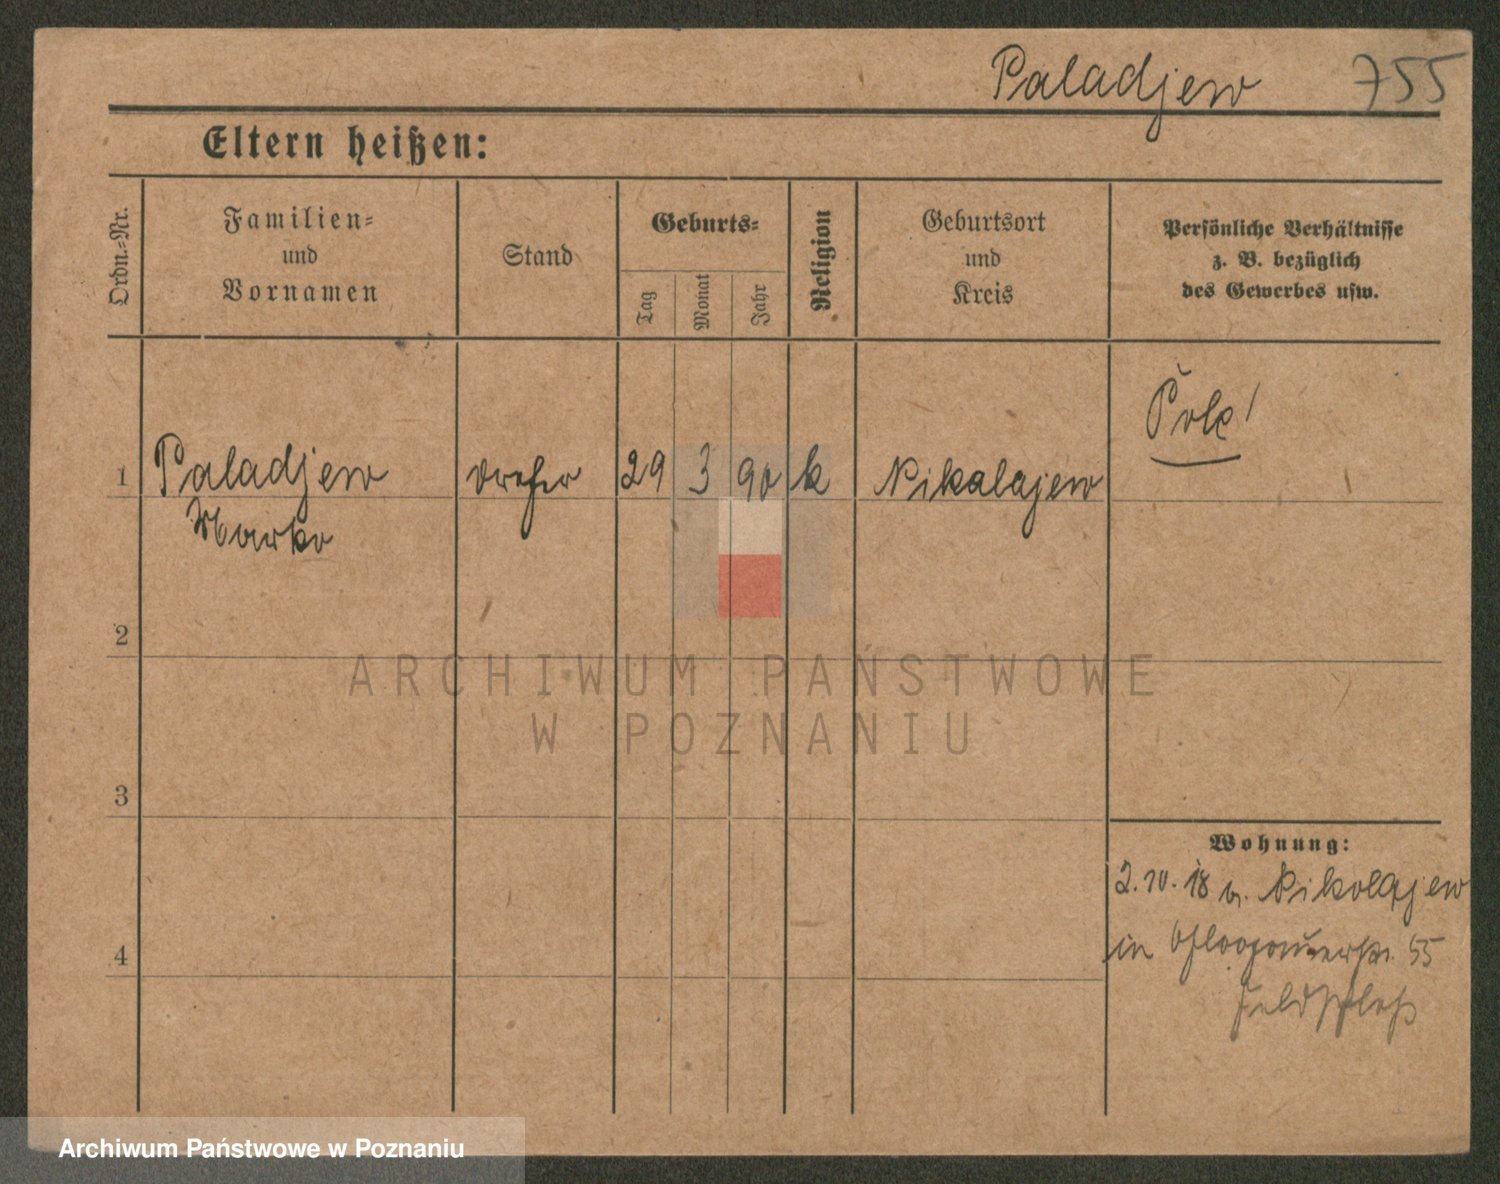 Paladjew 755
Eltern heißen:
Ordn.-Nr.
Familien-
und
Vornamen
Stand
Geburts-
Tag
Monat
Jahr
Religion
Geburtsort
und
Kreis
Persönliche Verhältnisse
z. B. bezüglich
des Gewerbes usw.
Pole!
1 Paladjew 29 3 90 k Nikalajew
Marko
2
3
4
Wohnung:
2.10.18 v. Nikolajew
in 55
ARCHIWUM PAŃSTWOWE
W POZNANIU
Archiwum Państwowe w Poznaniu